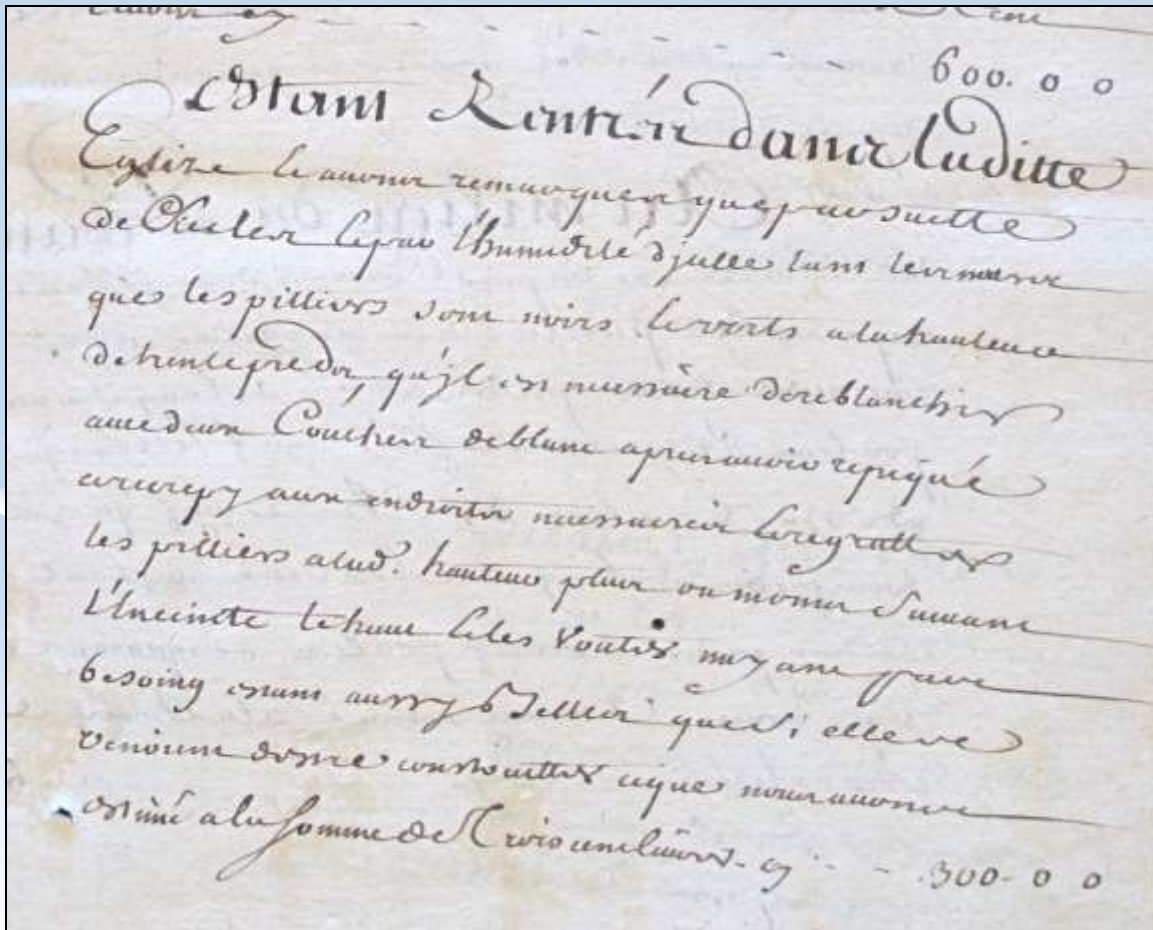 600. 0 0
Estant Rentrée dans laditte
Eglize le avons remarquer que par suitte
de l'humidité d'jcelle tant les murs
que les pilliers sont noirs & verts a la hauteur
de trente pieds, qu'jl est nuessaire de reblanchir
avec deux Couches de blanc apres avoir repiqué
et recrepy aux endroits nuessaires & regratter
les pilliers a lad. hauteur plus ou moins suivant
L'Enceinte le haut & les Voutes n'ayant pas
besoing estant aussy Belles que si elles
venoient d'estre construittes ce que nous avons
estimé a la somme de Trois cent livres - cy - - 300- 0 0